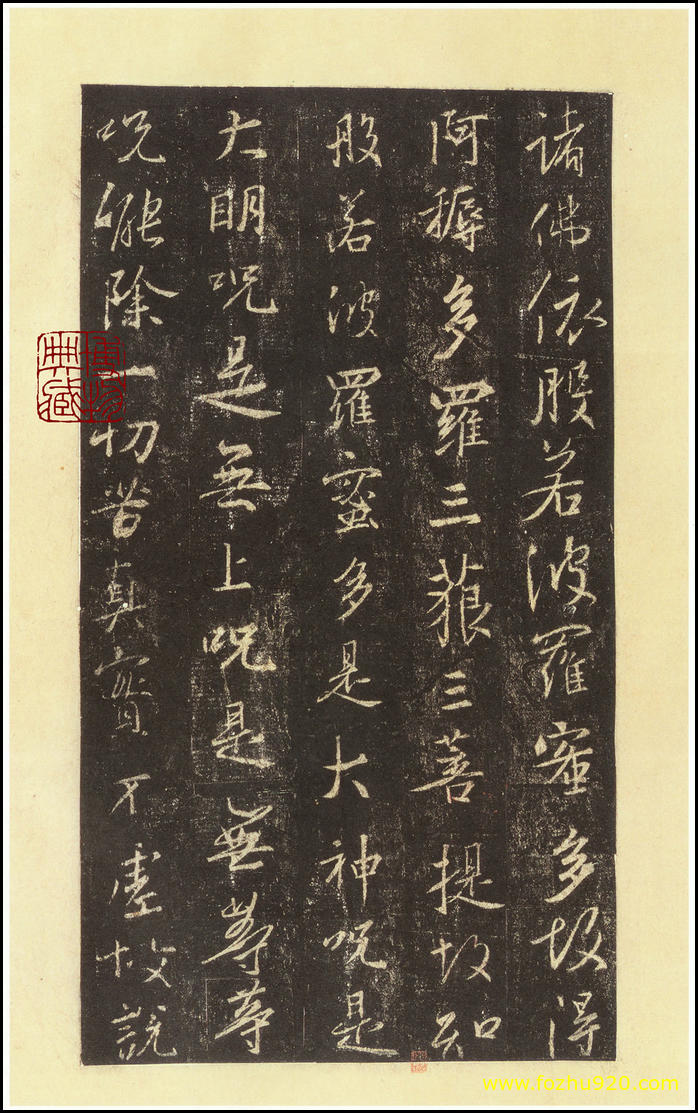 諸佛依般若波羅蜜多故得
阿耨多羅三藐三菩提故知
般若波羅蜜多是大神呪是
大明呪是無上呪是無等等
呪能除一切苦真實不虛故說
博物
典藏
www.fozhu920.com